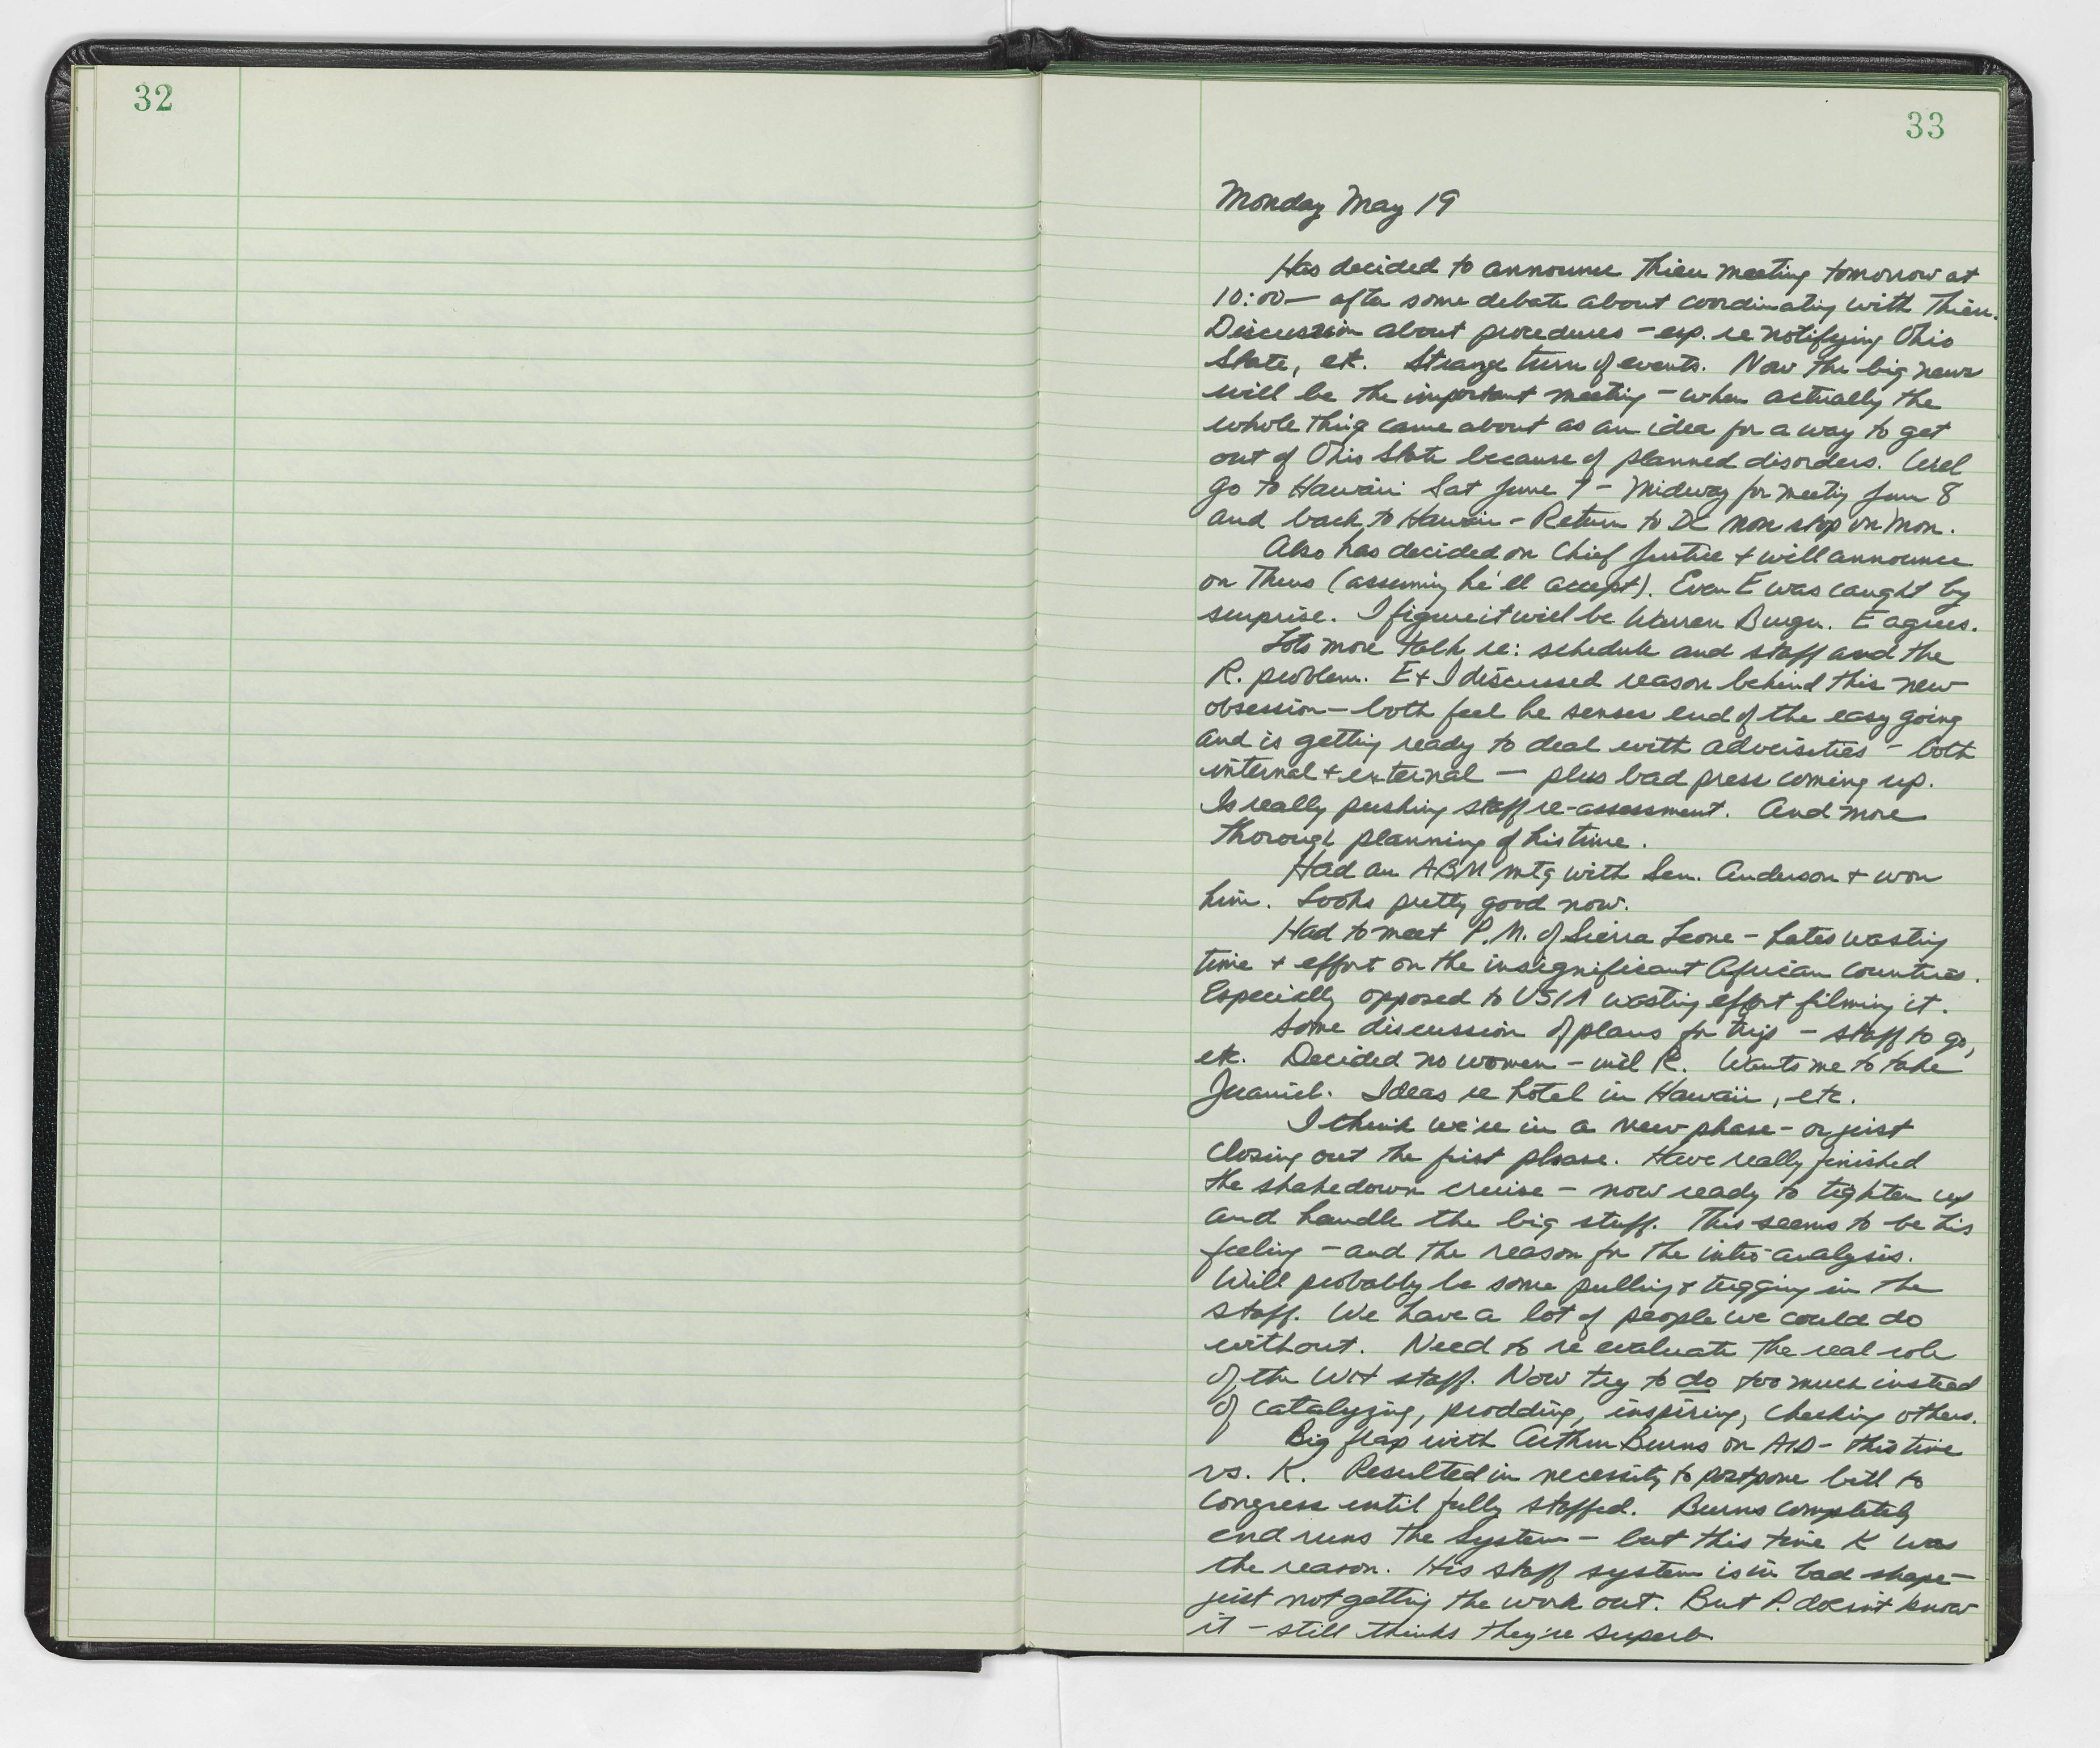 32
33
Monday May 19
Has decided to announce Thieu meeting tomorrow at
10:00 — after some debate about coordinating with Thieu.
Discussion about procedures - esp. re notifying Ohio
State, etc. Strange turn of events. Now the big news
will be the important meeting - when actually the
whole thing came about as an idea for a way to get
out of Ohio State because of planned disorders. Will
go to Hawaii Sat June 7 - Midway for meeting June 8
and back to Hawaii - Return to DC non stop on Mon.
Also has decided on Chief Justice + will announce
on Thurs (assuming he'll accept). Even E was caught by
surprise. I figure it will be Warren Burger. E agrees.
Lots more talk re: schedule and staff and the
R. problem. E + I discussed reason behind this new
obsession — both feel he senses end of the easy going
and is getting ready to deal with adversities - both
internal + external — plus bad press coming up.
Is really pushing staff re-assessment. And more
thorough planning of his time.
Had an ABM mtg with Sen. Anderson + won
him. Looks pretty good now.
Had to meet P.M. of Sierra Leone - hates wasting
time + effort on the insignificant African countries.
Especially opposed to USIA wasting effort filming it.
Some discussion of plans for trip - staff to go,
etc. Decided no women - incl R. Wants me to take
. Ideas re hotel in Hawaii, etc.
I think we're in a new phase - or just
closing out the first phase. Have really finished
the shakedown cruise - now ready to tighten up
and handle the big stuff. This seems to be his
feeling - and the reason for the intro-analysis.
Will probably be some pulling + tugging in the
staff. We have a lot of people we could do
without. Need to re evaluate the real role
of the WH staff. Now try to do too much instead
of catalyzing, prodding, inspiring, checking others.
Big flap with Arthur Burns on AID - this time
vs. K. Resulted in necessity to postpone bill to
Congress until fully staffed. Burns completely
end runs the system - but this time K was
the reason. His staff system is in bad shape -
just not getting the work out. But P. doesn't know
it - still thinks they're superb